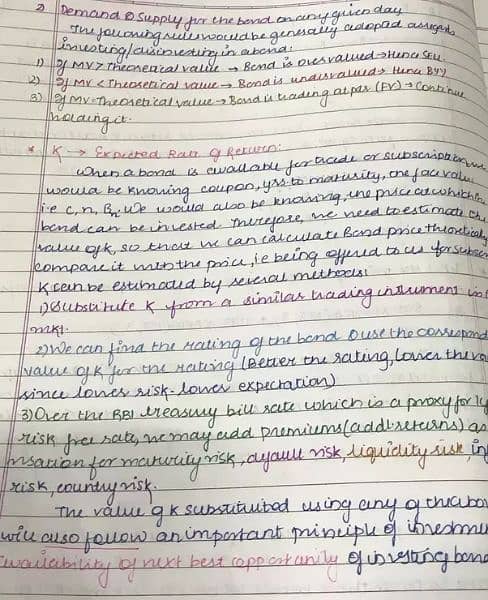 2) Demand & Supply for the bond on any given day
The following rules would be generally adopted as regards
investing/disinvesting in a bond:
1) If MV > Theoretical value → Bond is overvalued → Hence SELL
2) If MV < Theoretical value → Bond is undervalued → Hence BUY
3) If MV = Theoretical value → Bond is trading at par (FV) → Continue
holding it.
* K → Expected Rate of Return:
When a bond is available for trade or subscription, we
would be knowing coupon, yrs to maturity, the face value
i.e C, n, Bn. We would also be knowing, the price at which the
bond can be invested. Therefore, we need to estimate the
value of k, so that we can calculate Bond price theoretically
compare it with the price, i.e being offered to us for
K can be estimated by several methods:
1) Substitute K from a similar trading instrument in
mkt.
2) We can find the rating of the bond & use the
value of k for the rating (Better the rating, lower the
since lower risk - lower expectation)
3) Over the RBI treasury bill rate which is a proxy for
risk free rate, we may add premiums (addl returns) as
for maturity risk, default risk, liquidity risk,
risk, country risk.
The value of k substituted using any of the
will also follow an important principle of
availability of next best opportunity of investing